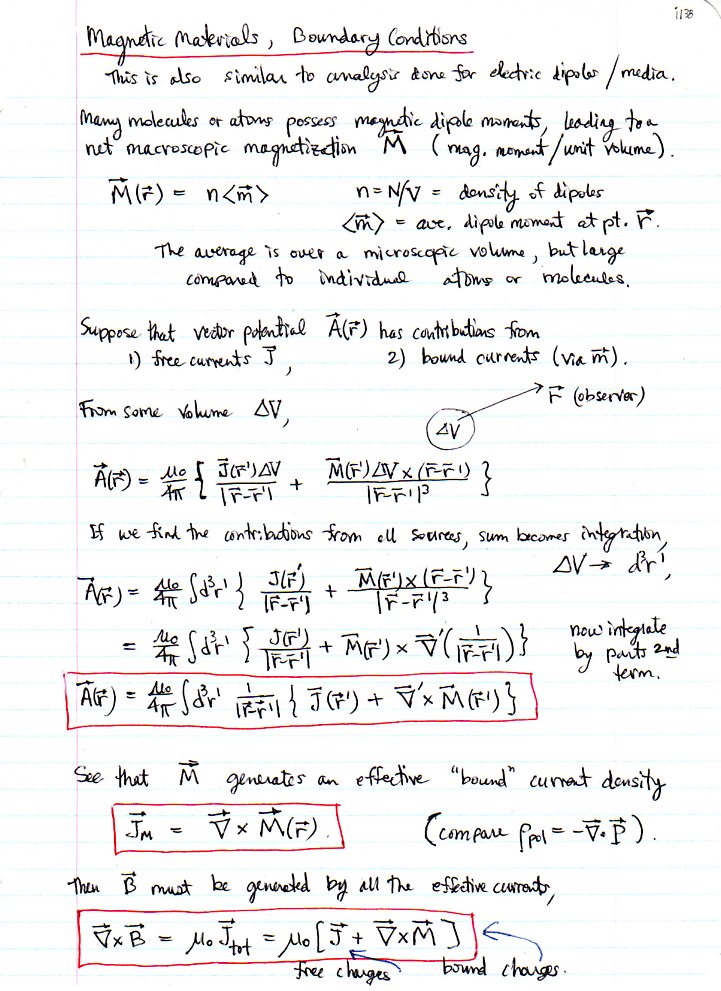 1138
Magnetic Materials, Boundary Conditions
This is also similar to analysis done for electric dipoles / media.
Many molecules or atoms possess magnetic dipole moments, leading to a
net macroscopic magnetization M⃗ (mag. moment/unit volume).
M⃗(r⃗) = n<m⃗> n = N/V = density of dipoles
<m⃗> = ave. dipole moment at pt. r⃗.
The average is over a microscopic volume, but large
compared to individual atoms or molecules.
Suppose that vector potential A⃗(r⃗) has contributions from
1) free currents J⃗, 2) bound currents (via m⃗).
r⃗ (observer)
From some volume ΔV,
ΔV
A⃗(r⃗) = μ₀/4π { J⃗(r⃗')ΔV/|r⃗-r⃗'| + M⃗(r⃗')ΔV×(r⃗-r⃗')/|r⃗-r⃗'|³ }
If we find the contributions from all sources, sum becomes integration,
ΔV → d³r',
A⃗(r⃗) = μ₀/4π ∫d³r' { J(r⃗')/|r⃗-r⃗'| + M⃗(r⃗')×(r⃗-r⃗')/|r⃗-r⃗'|³ }
= μ₀/4π ∫d³r' { J(r⃗')/|r⃗-r⃗'| + M⃗(r⃗') × ∇⃗'(1/|r⃗-r⃗'|) } now integrate
by parts 2nd
term.
A⃗(r⃗) = μ₀/4π ∫d³r' 1/|r⃗-r⃗'| { J⃗(r⃗') + ∇⃗'×M⃗(r⃗') }
See that M⃗ generates an effective "bound" current density
J⃗_M = ∇⃗ × M⃗(r⃗). (compare ρ_pol = -∇⃗·P⃗).
Then B⃗ must be generated by all the effective currents,
∇⃗×B⃗ = μ₀ J⃗_tot = μ₀ [ J⃗ + ∇⃗×M⃗ ]
free charges bound charges.